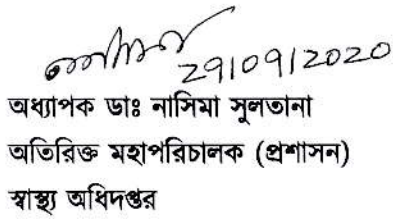 29/09/2020
অধ্যাপক ডাঃ নাসিমা সুলতানা
অতিরিক্ত মহাপরিচালক (প্রশাসন)
স্বাস্থ্য অধিদপ্তর